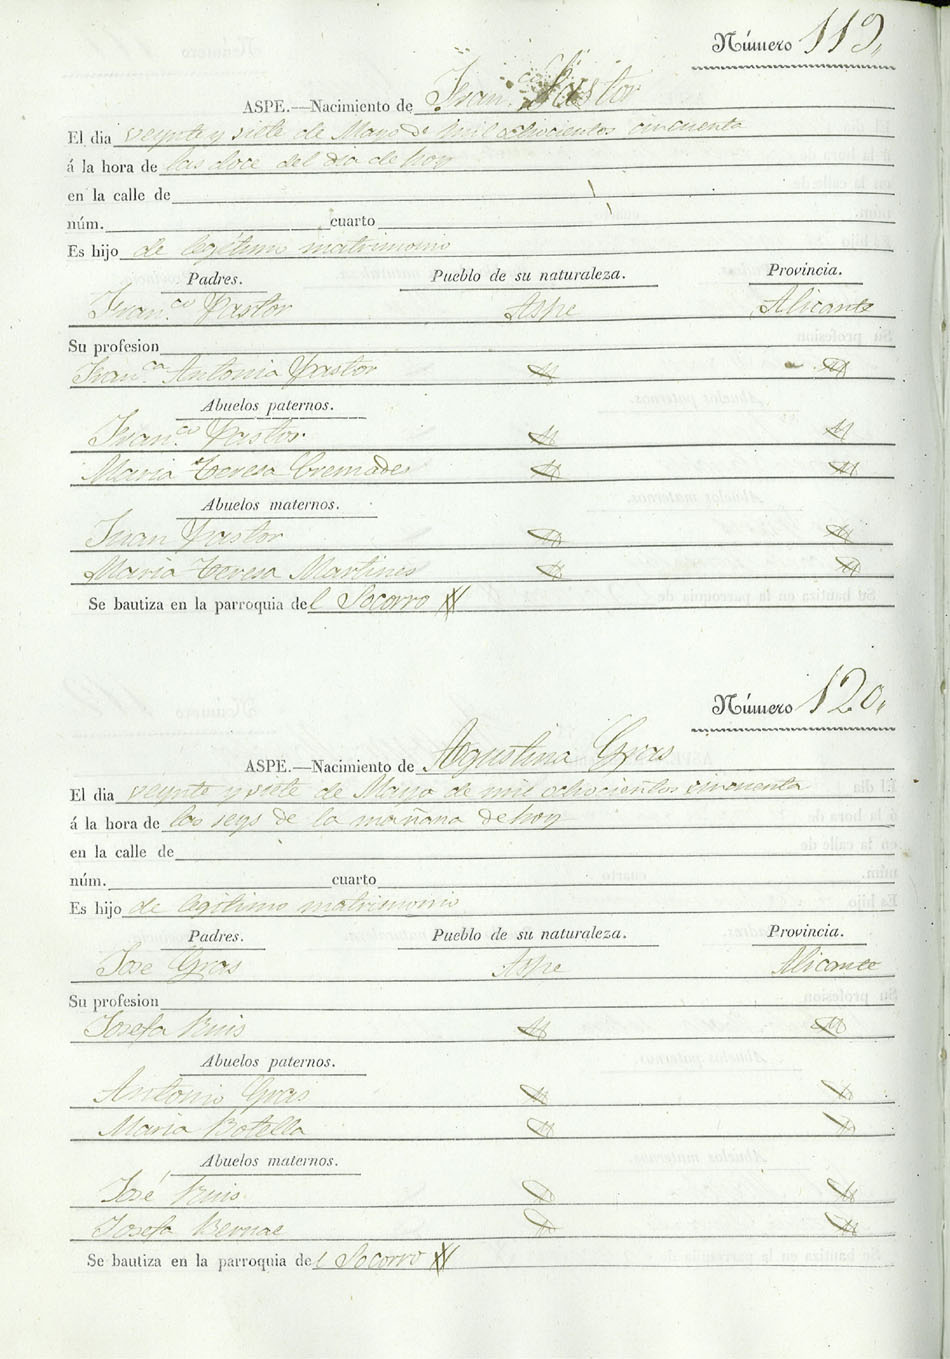 Número 119,
ASPE.—Nacimiento de Fran.co Pastor
El dia veynte y siete de Mayo de mil ochocientos cincuenta
á la hora de las doce del dia de hoy
en la calle de
núm. cuarto
Es hijo de legitimo matrimonio
Padres. Pueblo de su naturaleza. Provincia.
Fran.co Pastor Aspe Alicante
Su profesion
Fran.ca Antonia Pastor
Abuelos paternos.
Fran.co Pastor
Maria Teresa Cremades
Abuelos maternos.
Juan Pastor
Maria Teresa Martines
Se bautiza en la parroquia del Socorro
Número 120,
ASPE.—Nacimiento de Agustina Gras
El dia veynte y siete de Mayo de mil ochocientos cincuenta
á la hora de las seys de la mañana de hoy
en la calle de
núm. cuarto
Es hijo de legitimo matrimonio
Padres. Pueblo de su naturaleza. Provincia.
Jose Gras Aspe Alicante
Su profesion
Josefa Ruis
Abuelos paternos.
Antonio Gras
Maria Botella
Abuelos maternos.
José Ruis
Josefa Bernae
Se bautiza en la parroquia del Socorro